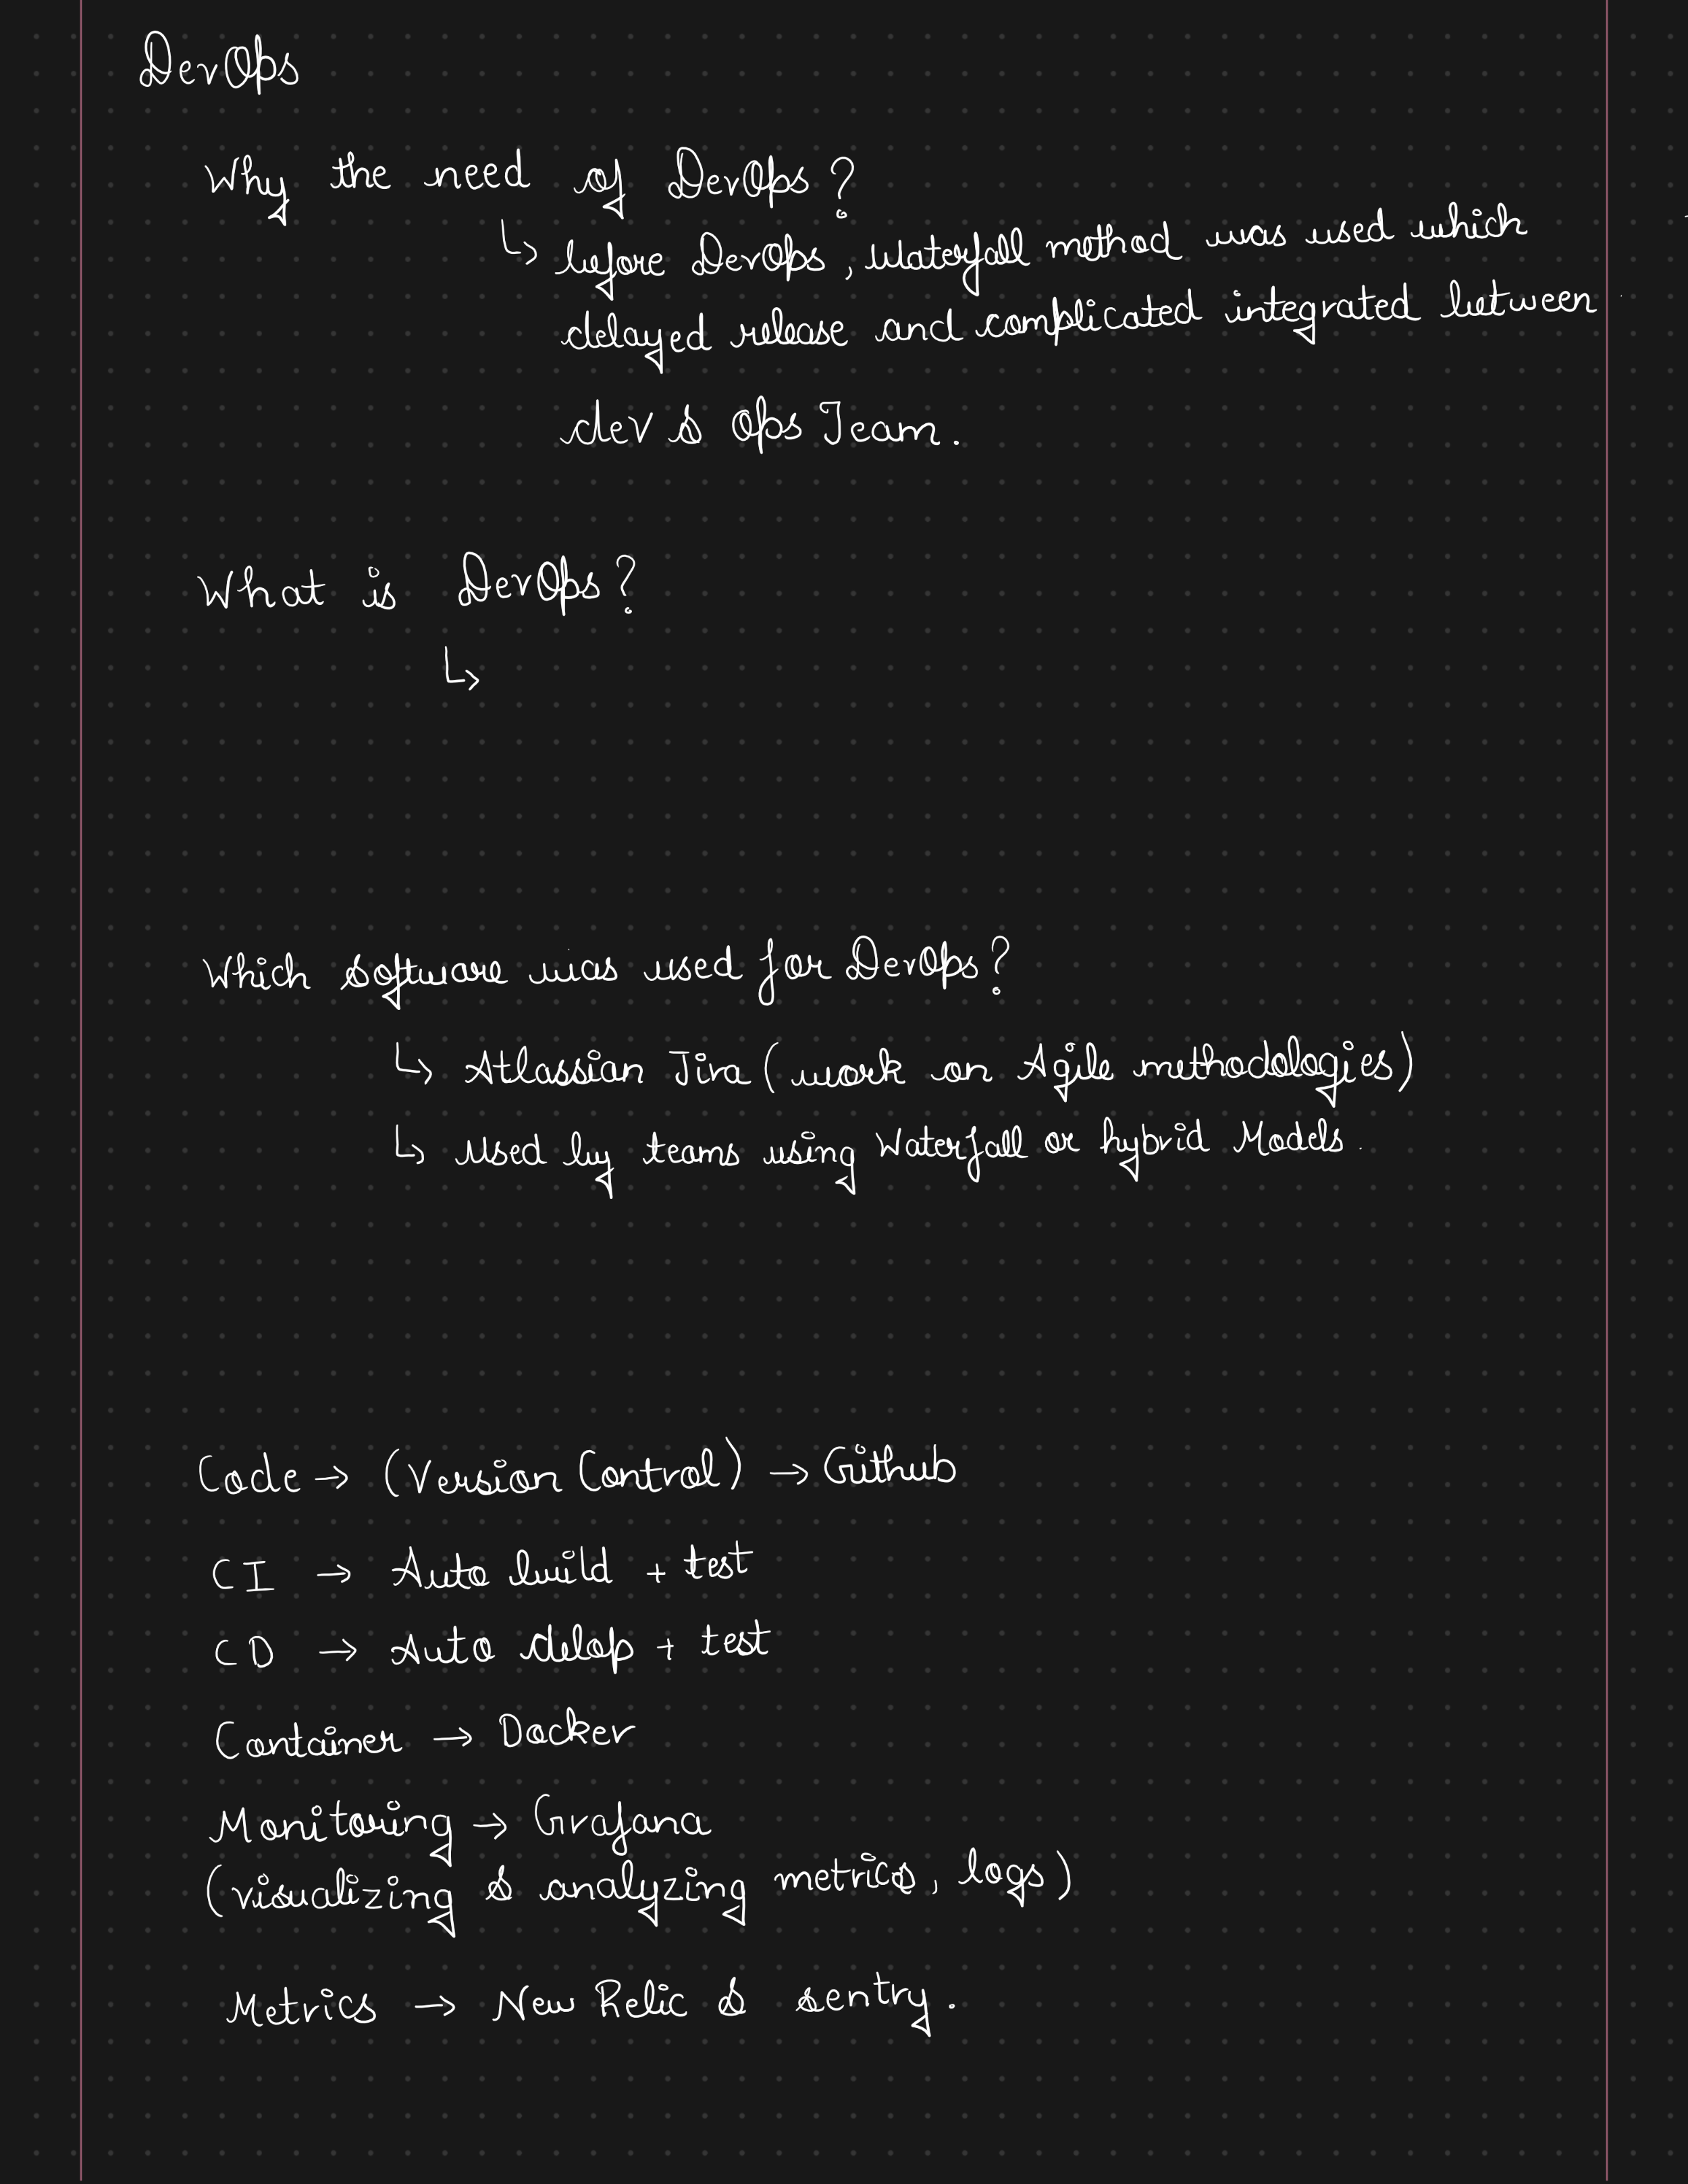 DevOps
Why the need of DevOps?
↳ before DevOps, Waterfall method was used which
delayed release and complicated integrated between
dev & Ops Team.
What is DevOps?
↳
Which software was used for DevOps?
↳ Atlassian Jira (work on Agile methodologies)
↳ Used by teams using Waterfall or hybrid Models.
Code → (Version Control) → Github
CI → Auto build + test
CD → Auto delop + test
Container → Docker
Monitoring → Grafana
(visualizing & analyzing metrics, logs)
Metrics → New Relic & sentry.